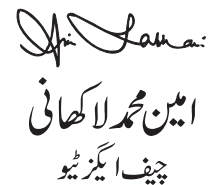 امین محمد لاکھانی
چیف ایگزیٹیو